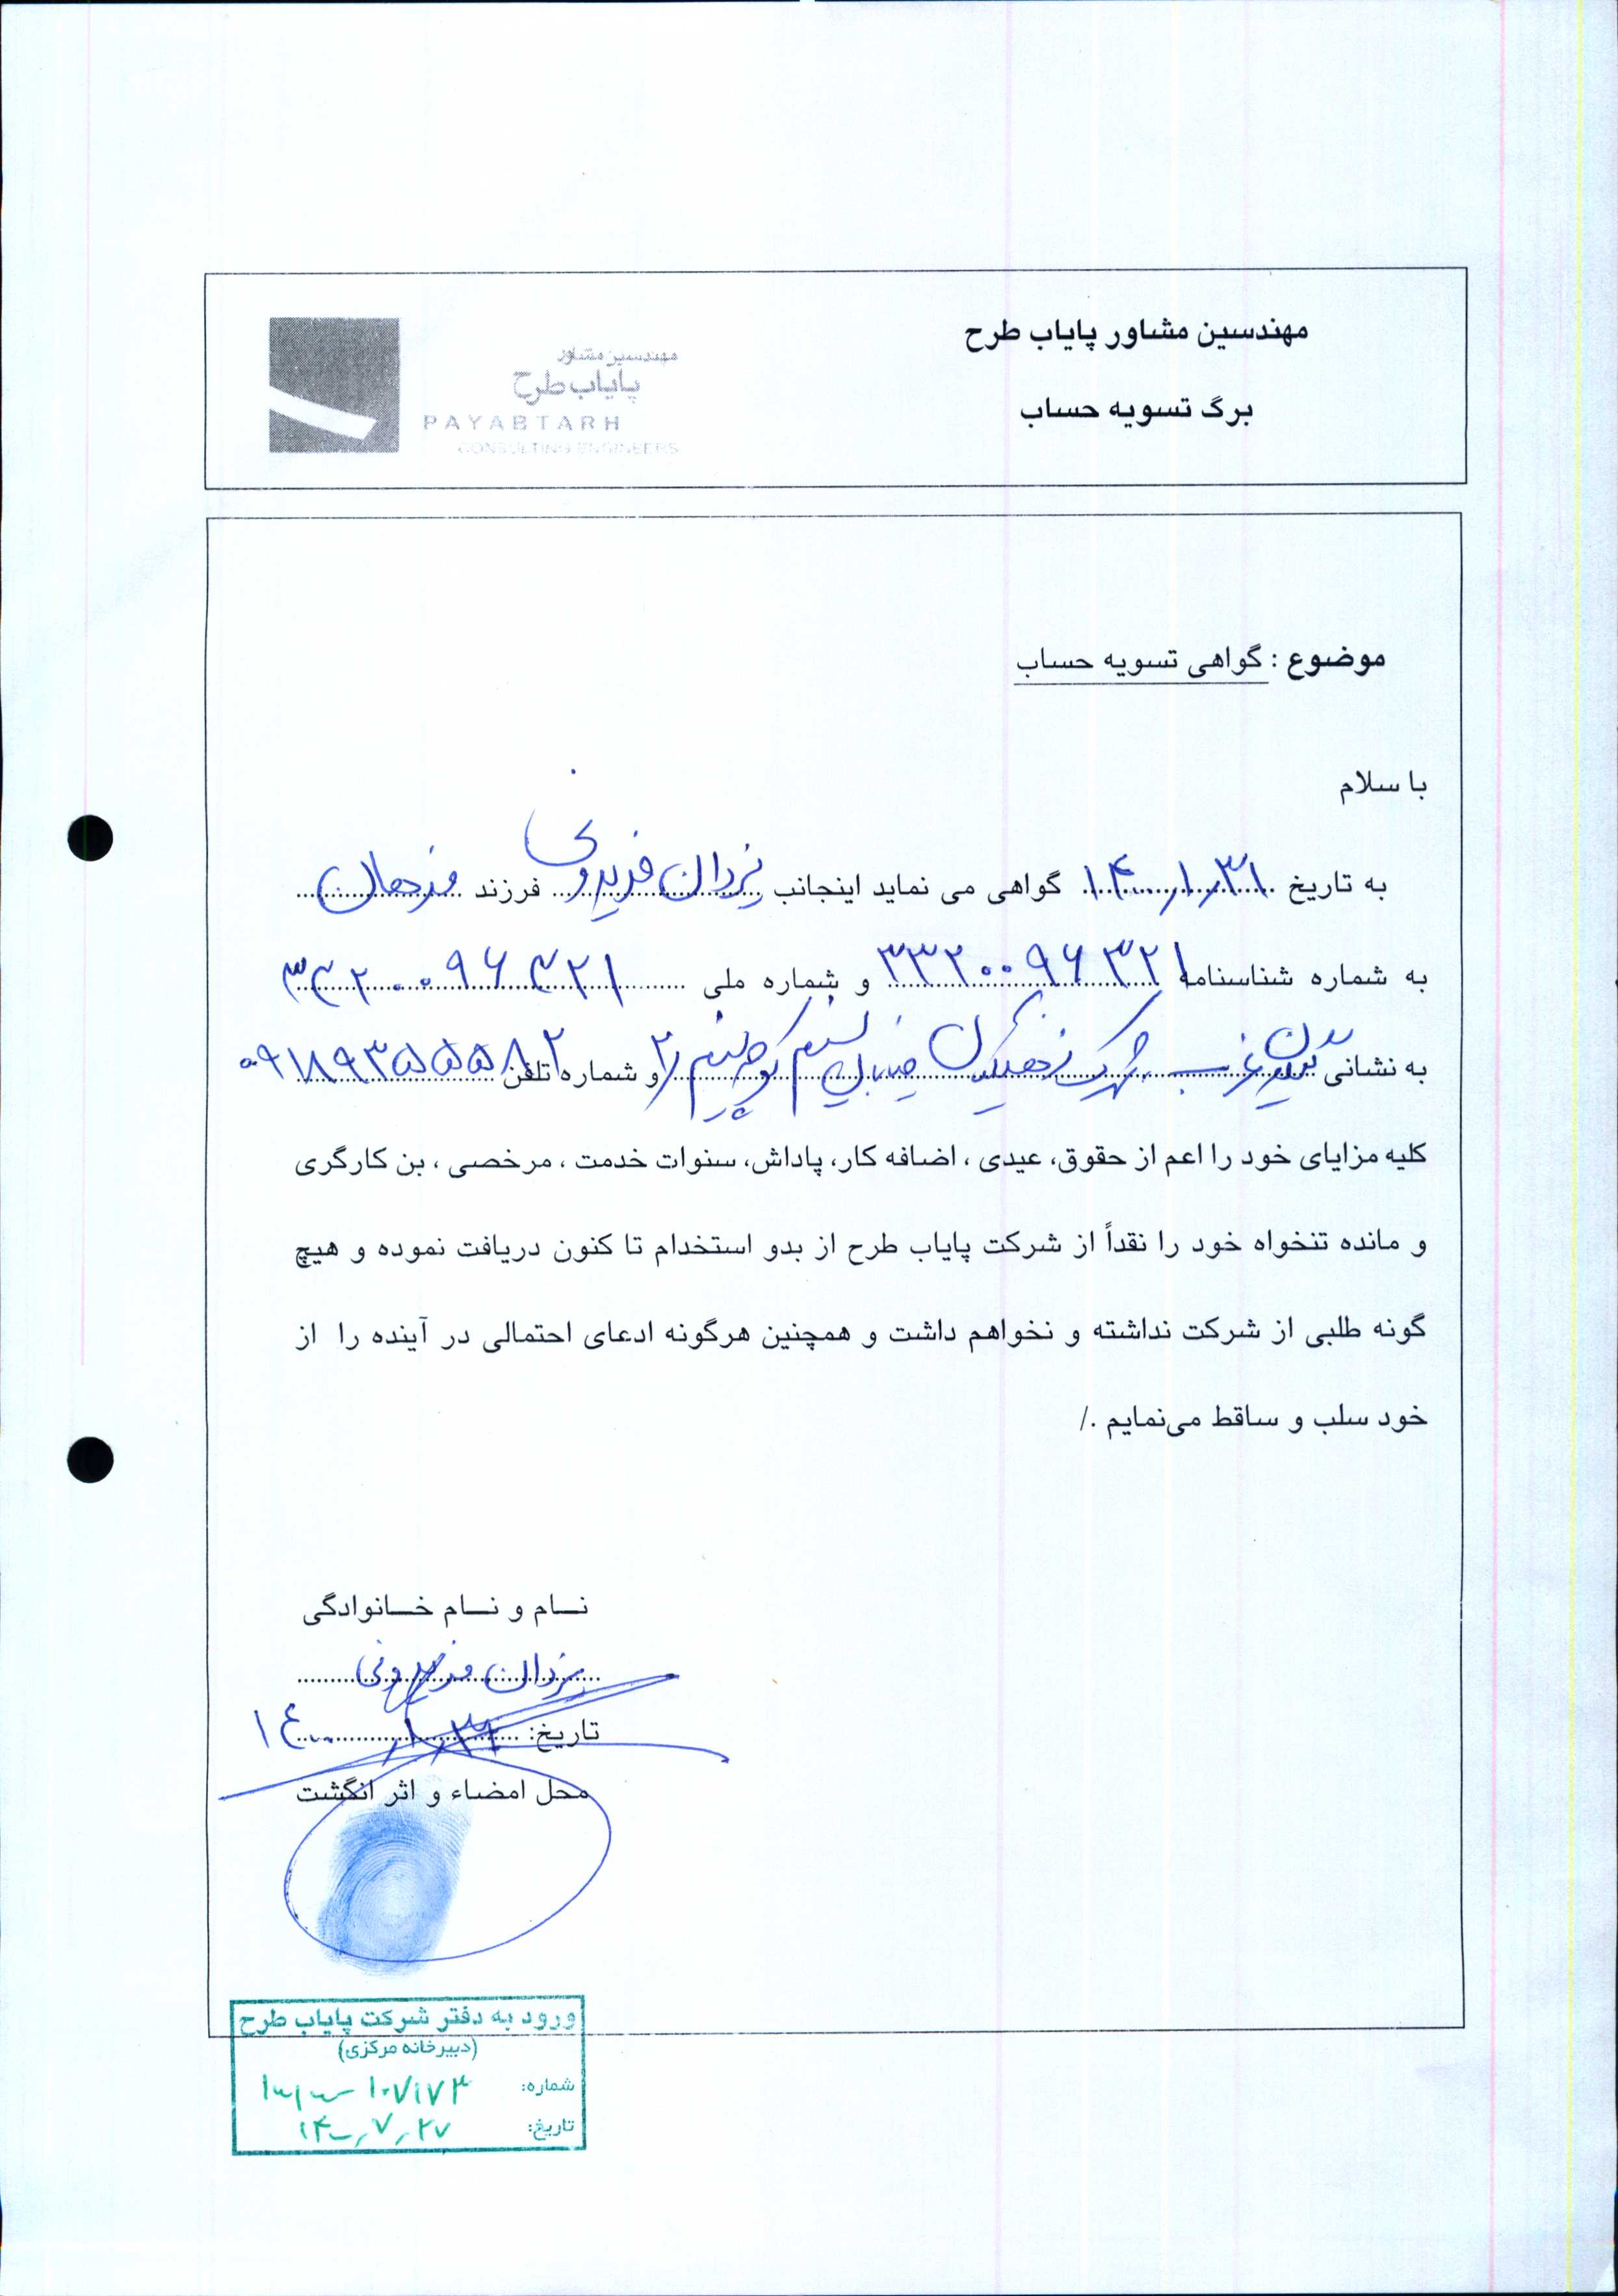 مهندسین مشاور پایاب طرح
برگ تسویه حساب
مهندسین مشاور
پایاب طرح
PAYABTARH
CONSULTING ENGINEERS
موضوع : گواهی تسویه حساب
با سلام
به تاریخ ۱۴۰۰/۱/۳۱ گواهی می نماید اینجانب یزدان فریدونی فرزند
به شماره شناسنامه ۳۳۲۰۰۹۶۳۲۱ و شماره ملی ۳۳۲۰۰۹۶۳۲۱
به نشانی تهران غرب شهرک فرهنگیان خیابان نسیم کوچه نسیم ۲ و شماره تلفن ۰۹۱۸۹۳۵۵۵۸۲
کلیه مزایای خود را اعم از حقوق، عیدی ، اضافه کار، پاداش، سنوات خدمت ، مرخصی ، بن کارگری
و مانده تنخواه خود را نقداً از شرکت پایاب طرح از بدو استخدام تا کنون دریافت نموده و هیچ
گونه طلبی از شرکت نداشته و نخواهم داشت و همچنین هرگونه ادعای احتمالی در آینده را از
خود سلب و ساقط می‌نمایم ./
نـــام و نـــام خـــانوادگی
یزدان فریدونی
تاریخ: ۱۴۰۰/۱/۳۱
محل امضاء و اثر انگشت
ورود به دفتر شرکت پایاب طرح
(دبیرخانه مرکزی)
شماره: ۱۰۷۱۷۳
تاریخ: ۱۴۰۰/۷/۲۷